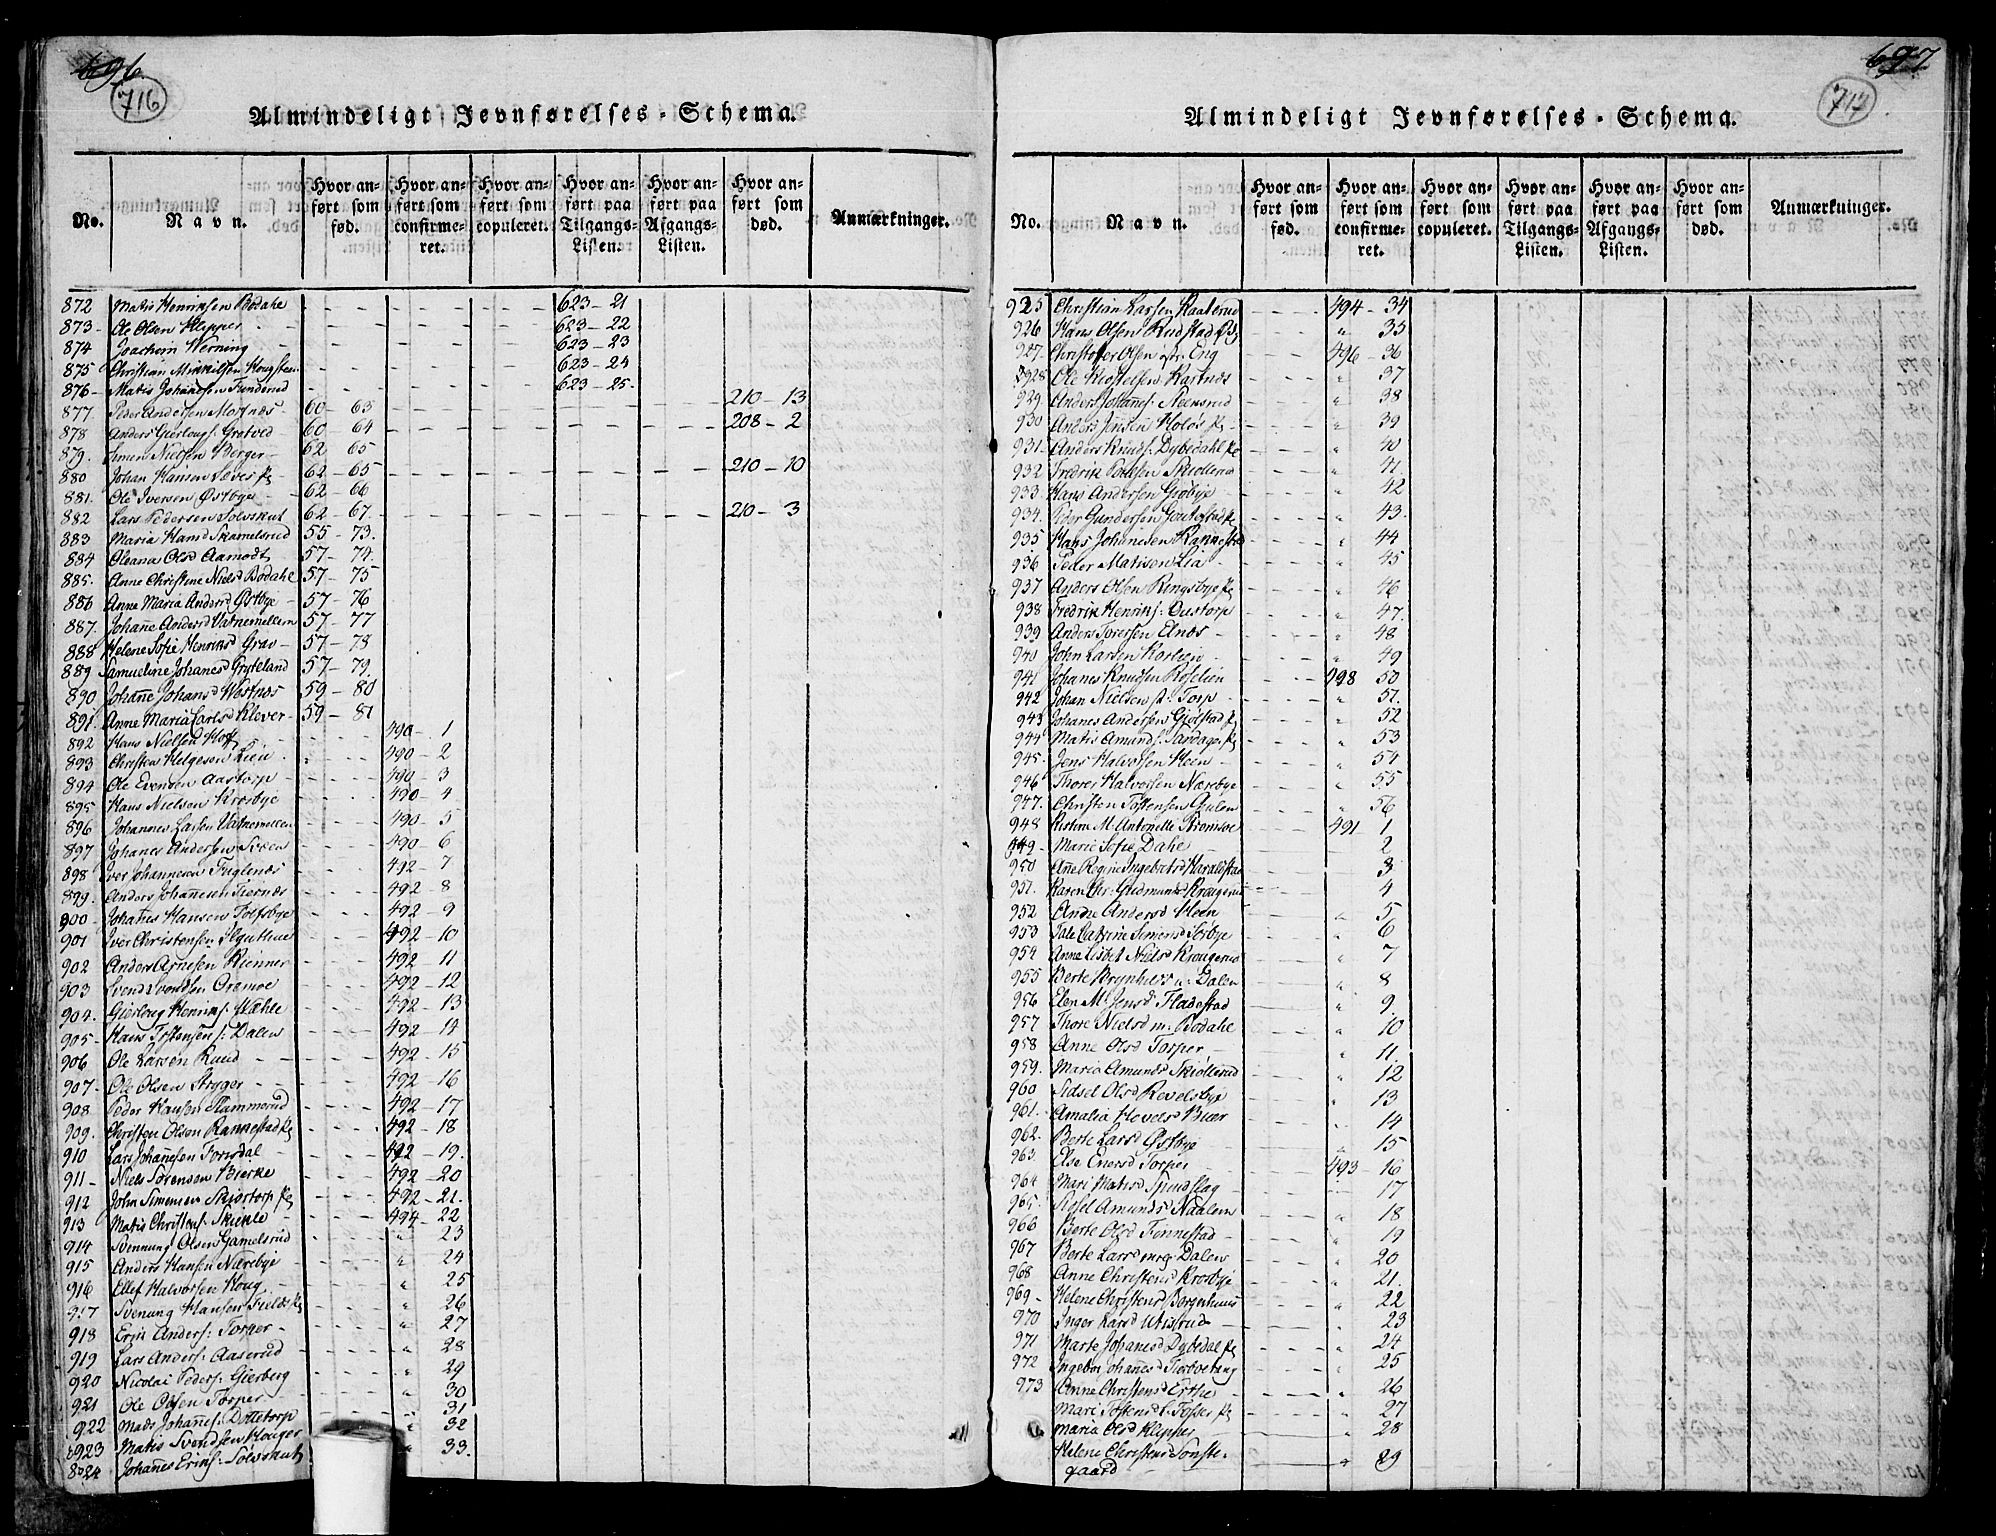 696.
716
Almindeligt Jevnførelses-Schema.
No.
Navn.
Hvor anført som fød.
Hvor anført som confirmeret.
Hvor anført som copuleret.
Hvor anført paa Tilgangs-Listen.
Hvor anført paa Afgangs-Listen.
Hvor anført som død.
Anmærkninger.
872 Matis Henriksen Bødahl 623-21
873 Ole Olsen Klepper 623-22
874 Joachim Werning 623-23
875 Christian Mikkilsen Hougsteen 623-24
876 Matis Johansen Funderud 623-25
877 Peder Andersen Mosnæs 60-63 210-13
878 Anders Gierlougs: Grøtved 60 64 208-2
879 Simen Nielsen Berger 62 65
880 Johan Hansen Løvøs Pl 62-65 210-10
881 Ole Iversen Østbye 62-66
882 Lars Pedersen Solvskut 62-67 210-3
883 Maria Hansd Skamelsrud 55-73
884 Oleana Olsd Aamodt 57-74
885 Anne Christine Nielsd Bodahl 57-75
886 Anne Maria Andersd Østbye 57-76
887 Johane Andersd Vatnemellem 57-77
888 Helene Sofie Henriksd Grav 57-78
889 Samueline Johanesd Gryteland 57-79
890 Johane Johansd Westnæs 59-80
891 Anne Maria Carlsd Kløver 59-81
892 Hans Nielsen Hoff 490-1
893 Christen Helgesen Lien 490-2
894 Ole Evensen Aastorp 490-3
895 Hans Nielsen Krosbye 490-4
896 Johannes Larsen Vatnemellem 490-5
897 Johanes Andersen Sveen 490-6
898 Iver Johannesen Fuglenæs 492-7
899 Anders Johannesen Tiernæs 492-8
900 Johanes Hansen Tofsbye 492-9
901 Iver Christensen 492-10
902 Anders Arnesen Rienner 492-11
903 Svend Svendsen Oremoe 492-12
904 Gierloug Henriks: Mæhle 492-13
905 Hans Tostensen s: Dalen 492-14
906 Ole Larsen Ruud 492-15
907 Ole Olsen Stryger 492-16
908 Peder Hansen Flammerud 492-17
909 Christen Olsen Rannestad Pl 492-18
910 Lars Johannesen Forsdal 492-19
911 Niels Sørensen Bierke 492-20
912 John Simensen Skjørtorp Pl 492-21
913 Matis Christens: Skiekle 494-22
914 Svennung Olsen Gamelsrud " 23
915 Anders Hansen Nærebye " 24
916 Ellef Halvorsen Houg " 25
917 Svenung Hansen Fields Pl " 26
918 Erik Anders: Torper " 27
919 Lars Anders: Aaserud 28
920 Nicolai Peders: Gierberg 29
921 Ole Olsen Torper 30
922 Mads Johanes: Dottetorp 31 32
923 Matis Svendsen Houger 33
924 Johanes Eriks: Solvskut
697
717
Almindeligt Jevnførelses-Schema.
No.
Navn.
Hvor anført som fød.
Hvor anført som confirmeret.
Hvor anført som copuleret.
Hvor anført paa Tilgangs-Listen.
Hvor anført paa Afgangs-Listen.
Hvor anført som død.
Anmærkninger.
925 Christian Larsen Kaaterud 494-34
926 Hans Olsen Rudstad " 35
927 Christofer Olsen str: Eng 496-36
928 Ole Kiostelsen Kastnæs " 37
929 Anders Johanes: Steensrud " 38
930 Anders Jensen Holøs Pl " 39
931 Anders Knuds: Dybedahl Pl " 40
932 Fredrik Poulsen Skiollerud " 41
933 Hans Andersen Grøbye " 42
934 Peder Gundersen Goutestad Pl " 43
935 Hans Johannesen Rannestad " 44
936 Peder Matisen Lia " 45
937 Anders Olsen Ringsbye Pl " 46
938 Fredrik Henriks: Oustorp " 47
939 Anders Torersen Elnæs " 48
940 John Larsen Korlien " 49
941 Johanes Knudsen Roselien 498 50
942 Johan Nielsen st: Torp " 51
943 Johanes Andersen Giølstad Pl " 52
944 Matis Amunds: Sandager Pl " 53
945 Jens Halvorsen Heen " 54
946 Thores Halvorsen Nærebye " 55
947 Christen Tostensen Gulen " 56
948 Kistine M. Antonette Strømsoe 491-1
949 Marie Sofie Dahl 2
950 Ane Regine Ingebretsd Haraldstad 3
951 Karen Chr: Gudmunds Krougerud 4
952 Anne Andersd Heen " 5
953 Tale Catrine Simensd Sørbye " 6
954 Anne Lisbet Nielsd Krougerud " 7
955 Berte Brynhilds n: Dalen " 8
956 Elen M. Jensd Fladestad " 9
957 Thore Nielsd m: Bodahl " 10
958 Anne Olsd Torper " 11
959 Maria Amunds Skiollerud " 12
960 Sidsel Olsd Revelsbye " 13
961 Amalia Hevels Biær " 14
962 Berte Larsd Østbye " 15
963 Else Enersd Torper 493-16
964 Mari Matisd Spindslag " 17
965 Sissel Amunds Naalem " 18
966 Berte Olsd Finnestad " 19
967 Berte Larsd Dalen " 20
968 Anne Christens Krosbye " 21
969 Helene Christens Borgenhuus " 22
970 Inger Larsd Ullisrud " 23
971 Marte Johanesd Dybedal Pl " 24
972 Ingebor Johanesd 25
973 Anne Christensd Ertse " 26
Mari Tostens l: Fosser Pl " 27
Maria Olsd Klepper " 28
Helene Christens Tonste-
gaard " 29